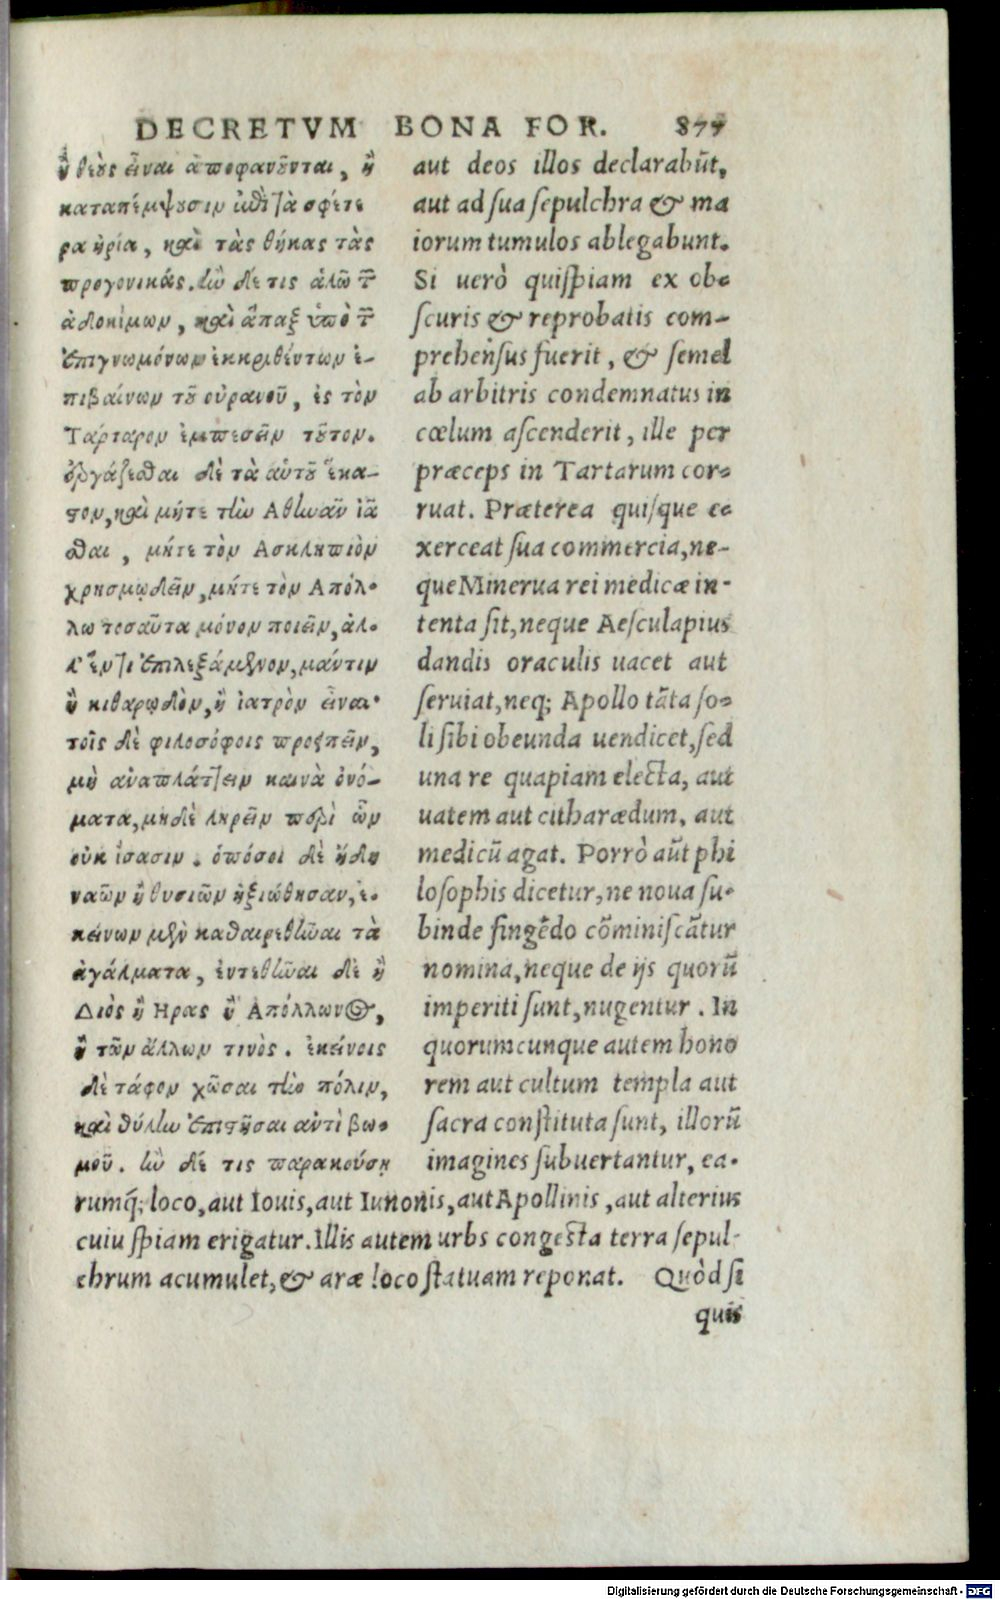 DECRETVM BONA FOR. 877
ἢ θεοὺς εἶναι ἀποφανοῦνται, ἢ
καταπέμψουσιν ἐπὶ τὰ σφέτε
ρα ἠρία, καὶ τὰς θήκας τὰς
προγονικάς. ἢν δέ τις ἁλῷ τῶν
ἀδοκίμων, καὶ ἅπαξ ὑπὸ τῶν
ἐπιγνωμόνων ἐκκριθέντων ἐ-
πιβαίνων τοῦ οὐρανοῦ, ἐς τὸν
Τάρταρον ἐμπεσεῖν τοῦτον.
ἐργάζεσθαι δὲ τὰ αὑτοῦ ἕκα-
στον, καὶ μήτε τὴν Αθηνᾶν ἰᾶ
σθαι, μήτε τὸν Ασκληπιὸν
χρησμῳδεῖν, μήτε τὸν Απόλ-
λω τοσαῦτα μόνον ποιεῖν, ἀλ-
λ' ἕν τι ἐπιλεξάμενον, μάντιν
ἢ κιθαρῳδὸν, ἢ ἰατρὸν εἶναι·
τοῖς δὲ φιλοσόφοις προειπεῖν,
μὴ ἀναπλάττειν καινὰ ὀνό-
ματα, μηδὲ ληρεῖν περὶ ὧν
οὐκ ἴσασιν. ὁπόσοι δὲ ἤδη
ναῶν ἢ θυσιῶν ἠξιώθησαν, ἐ-
κείνων μὲν καθαιρεθῆναι τὰ
ἀγάλματα, ἐντεθῆναι δὲ ἢ
Διὸς ἢ Ηρας ἢ Απόλλωνος,
ἢ τῶν ἄλλων τινὸς. ἐκείνοις
δὲ τάφον χῶσαι τὴν πόλιν,
καὶ στήλην ἐπιστῆσαι ἀντὶ βω-
μοῦ. ἢν δέ τις παρακούσῃ
aut deos illos declarabūt,
aut ad sua sepulchra & ma
iorum tumulos ablegabunt.
Si uerò quispiam ex ob-
scuris & reprobatis com-
prehensus fuerit, & semel
ab arbitris condemnatus in
cœlum ascenderit, ille per
præceps in Tartarum cor-
ruat. Præterea quisque e-
xerceat sua commercia, ne-
que Minerua rei medicæ in-
tenta sit, neque Aesculapius
dandis oraculis uacet aut
seruiat, neq; Apollo tāta so-
li sibi obeunda uendicet, sed
una re quapiam electa, aut
uatem aut citharædum, aut
medicū agat. Porrò aūt phi
losophis dicetur, ne noua su-
binde fingēdo cōminiscātur
nomina, neque de ijs quorū
imperiti sunt, nugentur. In
quorumcunque autem hono
rem aut cultum templa aut
sacra constituta sunt, illorū
imagines subuertantur, ea-
rumq́; loco, aut Iouis, aut Iunonis, aut Apollinis, aut alterius
cuiuspiam erigatur. Illis autem urbs congesta terra sepul-
chrum acumulet, & aræ loco statuam reponat. Quòd si
quis
Digitalisierung gefördert durch die Deutsche Forschungsgemeinschaft - DFG